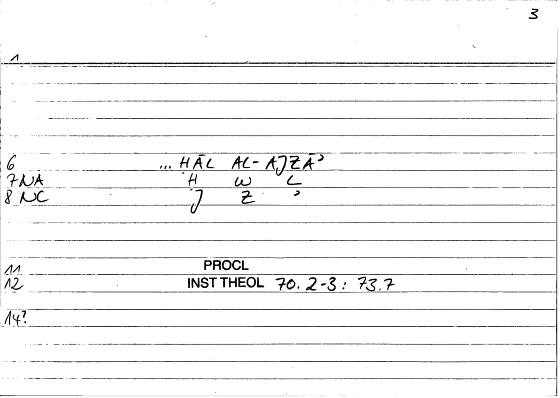 3
1
6 ... ḤĀL AL-AJZĀʾ
7 NA Ḥ W L
8 NC J Z ʾ
11 PROCL
12 INST THEOL 70. 2-3 : 73.7
14?